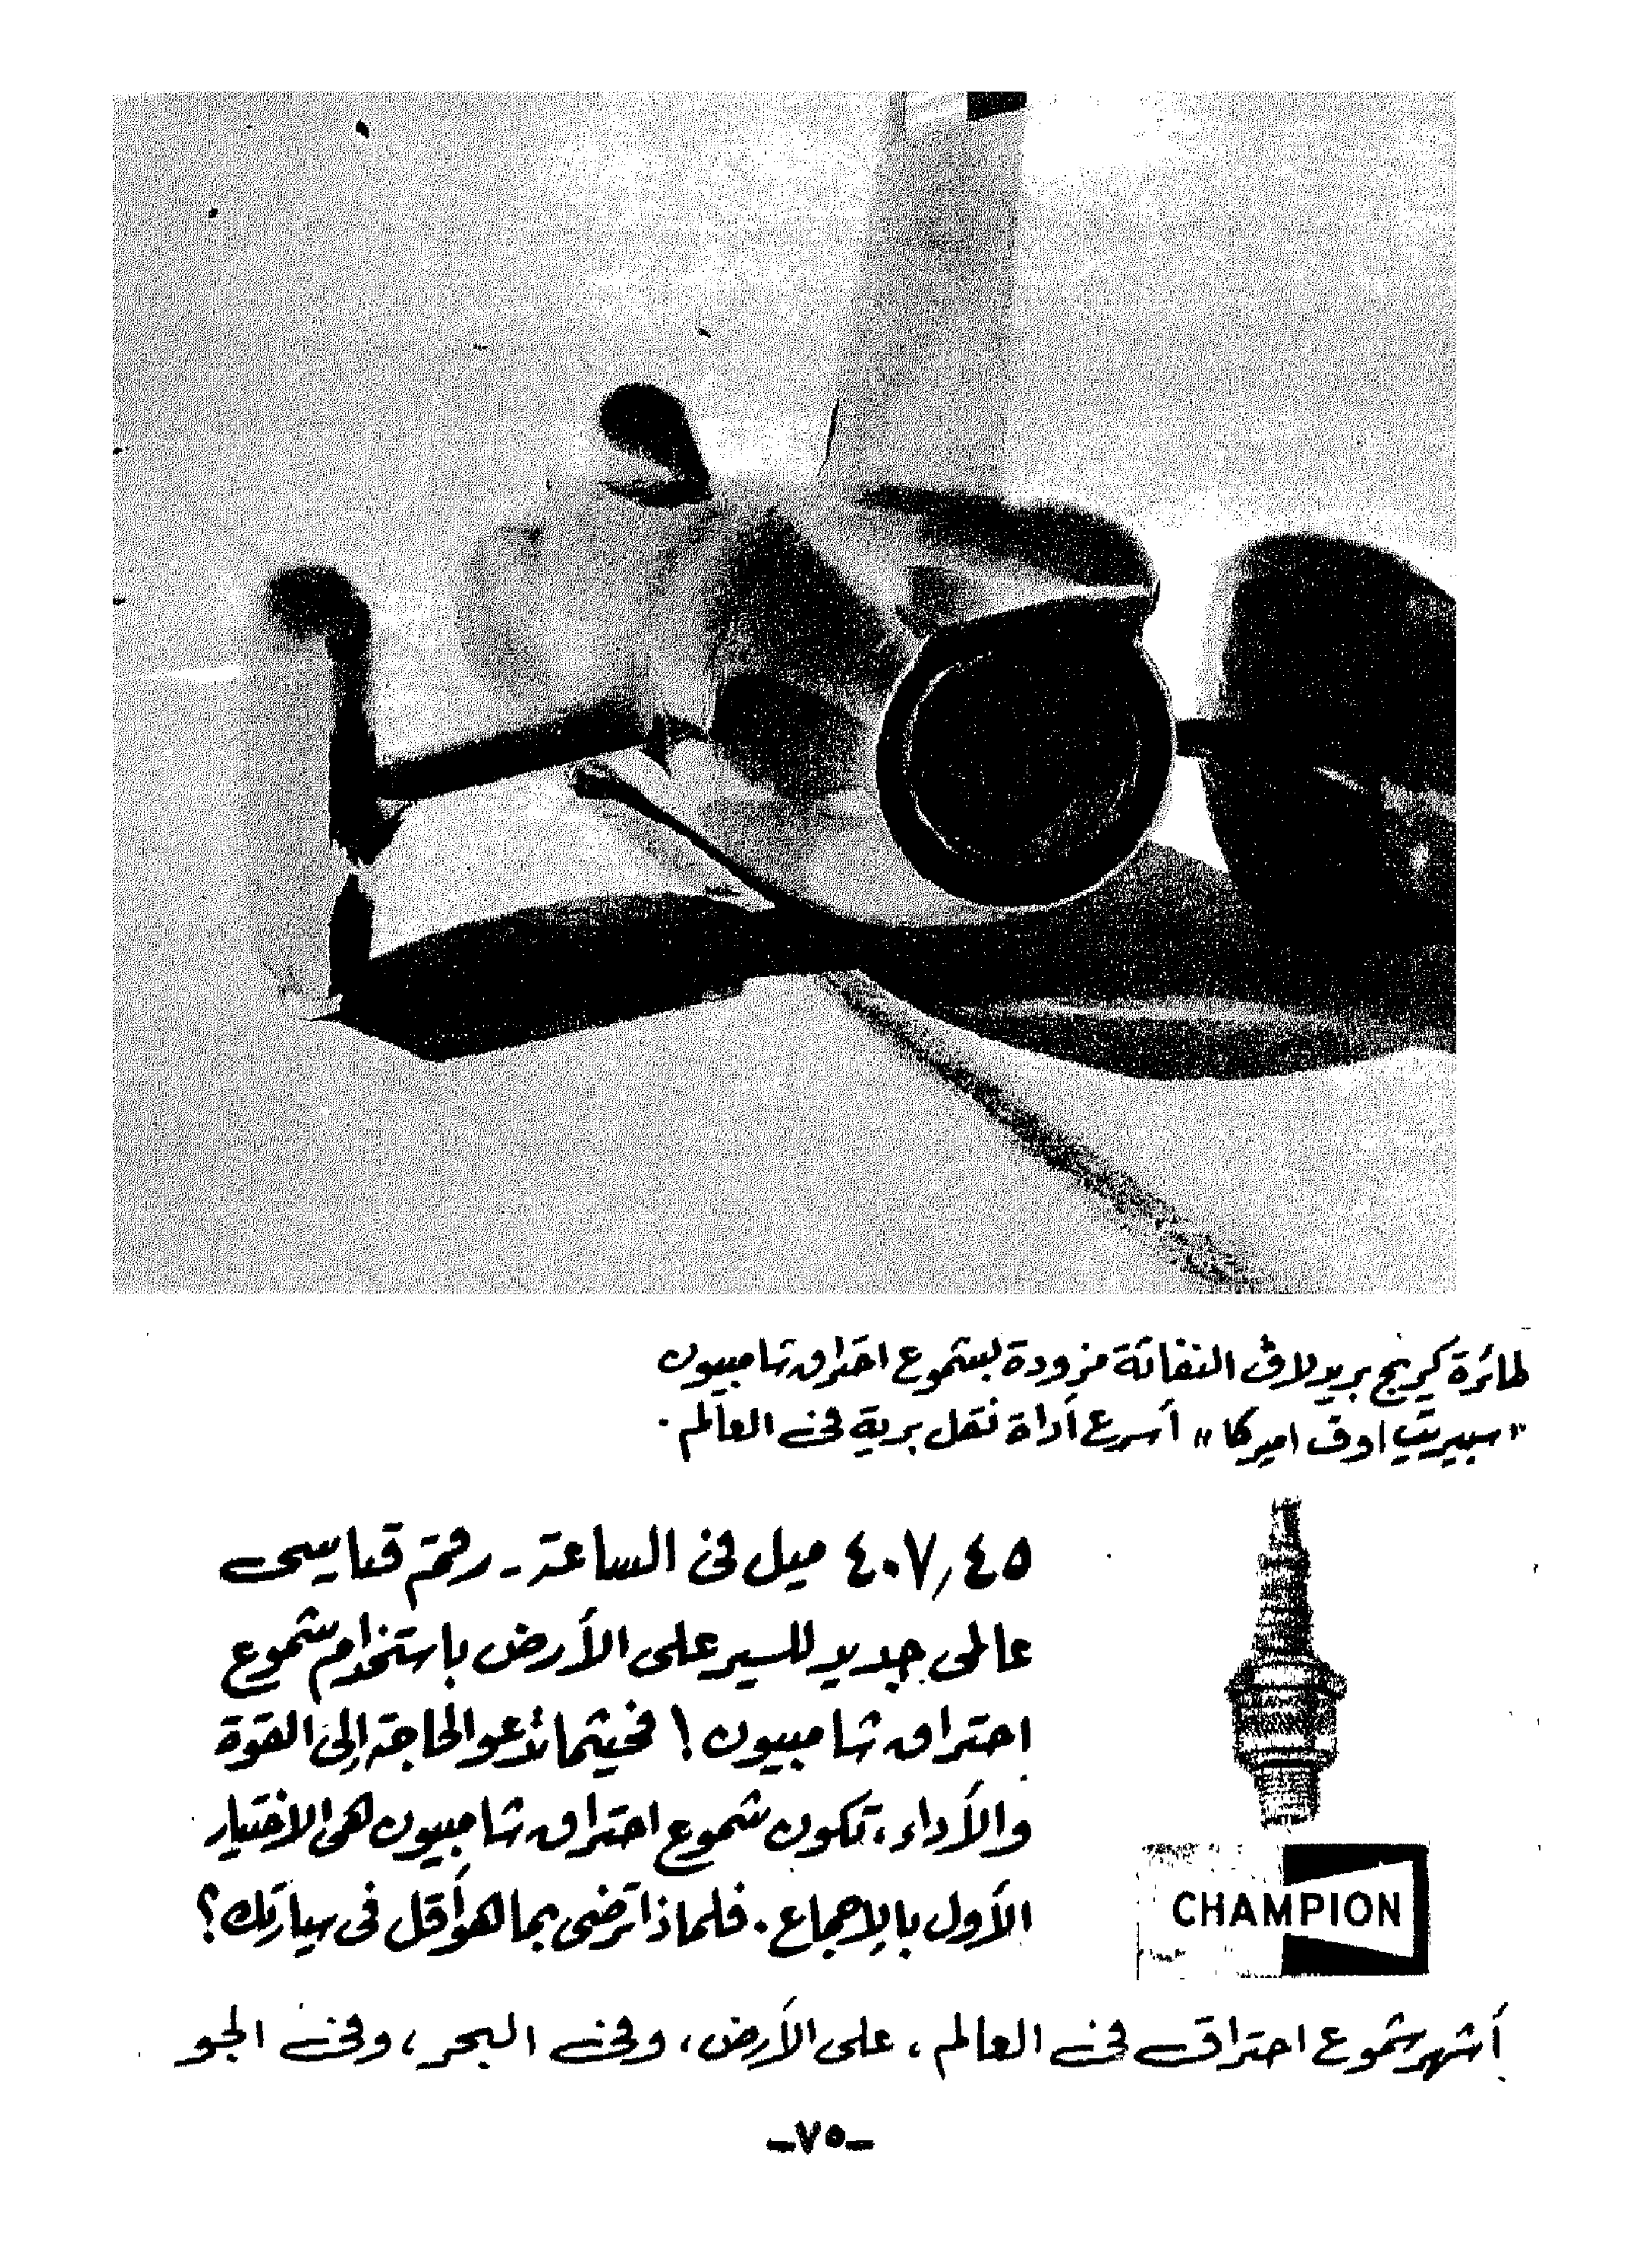 طائرة كريج بريدلاف النفاثة مزودة بشموع احتراق شامبيون
"سبيريت اوف اميركا" أسرع أداة نقل برية في العالم.
٤٠٧٫٤٥ ميل في الساعة - رقم قياسي
عالمي جديد للسير على الأرض باستخدام شموع
احتراق شامبيون! فحيثما تدعو الحاجة إلى القوة
والأداء، تكون شموع احتراق شامبيون هي الاختيار
الأول بالإجماع. فلماذا ترضى بما هو أقل في سيارتك؟
CHAMPION
أشهر شموع احتراق في العالم، على الأرض، وفي البحر، وفي الجو
-٧٥-